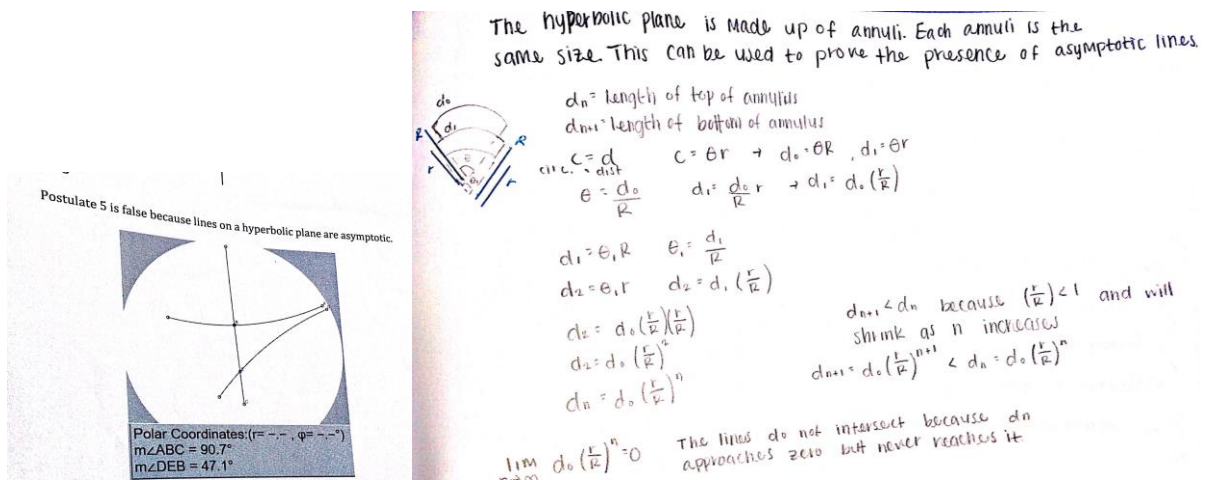 Postulate 5 is false because lines on a hyperbolic plane are asymptotic.
Polar Coordinates:(r= -.- , φ= -.-°)
m∠ABC = 90.7°
m∠DEB = 47.1°
The hyperbolic plane is made up of annuli. Each annuli is the
same size. This can be used to prove the presence of asymptotic lines.
d₀
d₁
R
R
r
r
θ
dₙ = length of top of annulus
dₙ₊₁ = length of bottom of annulus
C = d
circ. = dist
C = θr → d₀ = θR , d₁ = θr
θ = d₀/R
d₁ = d₀/R r → d₁ = d₀ (r/R)
d₁ = θ₁R θ₁ = d₁/R
d₂ = θ₁r d₂ = d₁ (r/R)
d₂ = d₀ (r/R)(r/R)
d₂ = d₀ (r/R)²
dₙ = d₀ (r/R)ⁿ
dₙ₊₁ < dₙ because (r/R) < 1 and will
shrink as n increases
dₙ₊₁ = d₀ (r/R)ⁿ⁺¹ < dₙ = d₀ (r/R)ⁿ
lim d₀ (r/R)ⁿ = 0
The lines do not intersect because dₙ
approaches zero but never reaches it